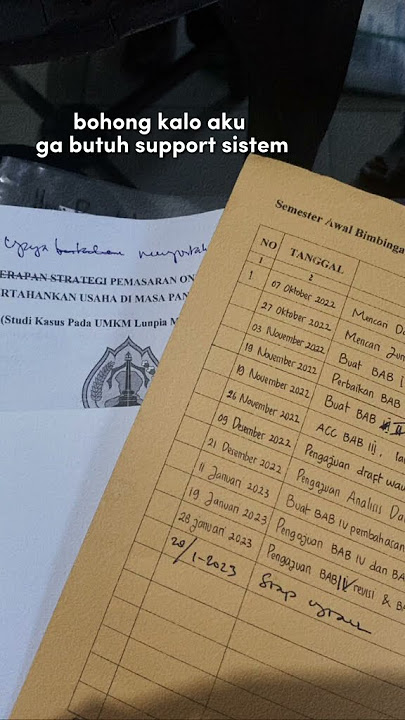 bohong kalo aku
ga butuh support sistem
Upaya
ERAPAN STRATEGI PEMASARAN ON
ERTAHANKAN USAHA DI MASA PAN
(Studi Kasus Pada UMKM Lunpia M
Semester Awal Bimbinga
NO TANGGAL
1 2
1 07 Oktober 2022 Mencari Da
27 Oktober 2022 Mencari Jur
03 November 2022 Buat BAB I
19 November 2022 Perbaikan BAB
19 November 2022 Buat BAB II
26 November 2022 ACC BAB III,
09 Desember 2022 Pengajuan draft waw
21 Desember 2022 Pengajuan Analisis Da
11 Januari 2023 Buat BAB IV pembahasan
19 Januari 2023 Pengajuan BAB IV dan BA
28 januari 2023 Pengajuan BAB IV revisi & BA
28/1-2023 Siap ujian